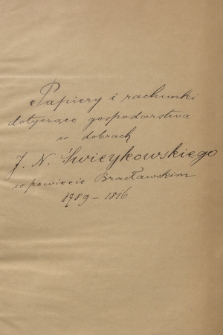 Papiery i rachunki
dotyczące gospodarstwa
w dobrach
J. N. Świeykowskiego
w powiecie Bracławskim
1789 – 1816